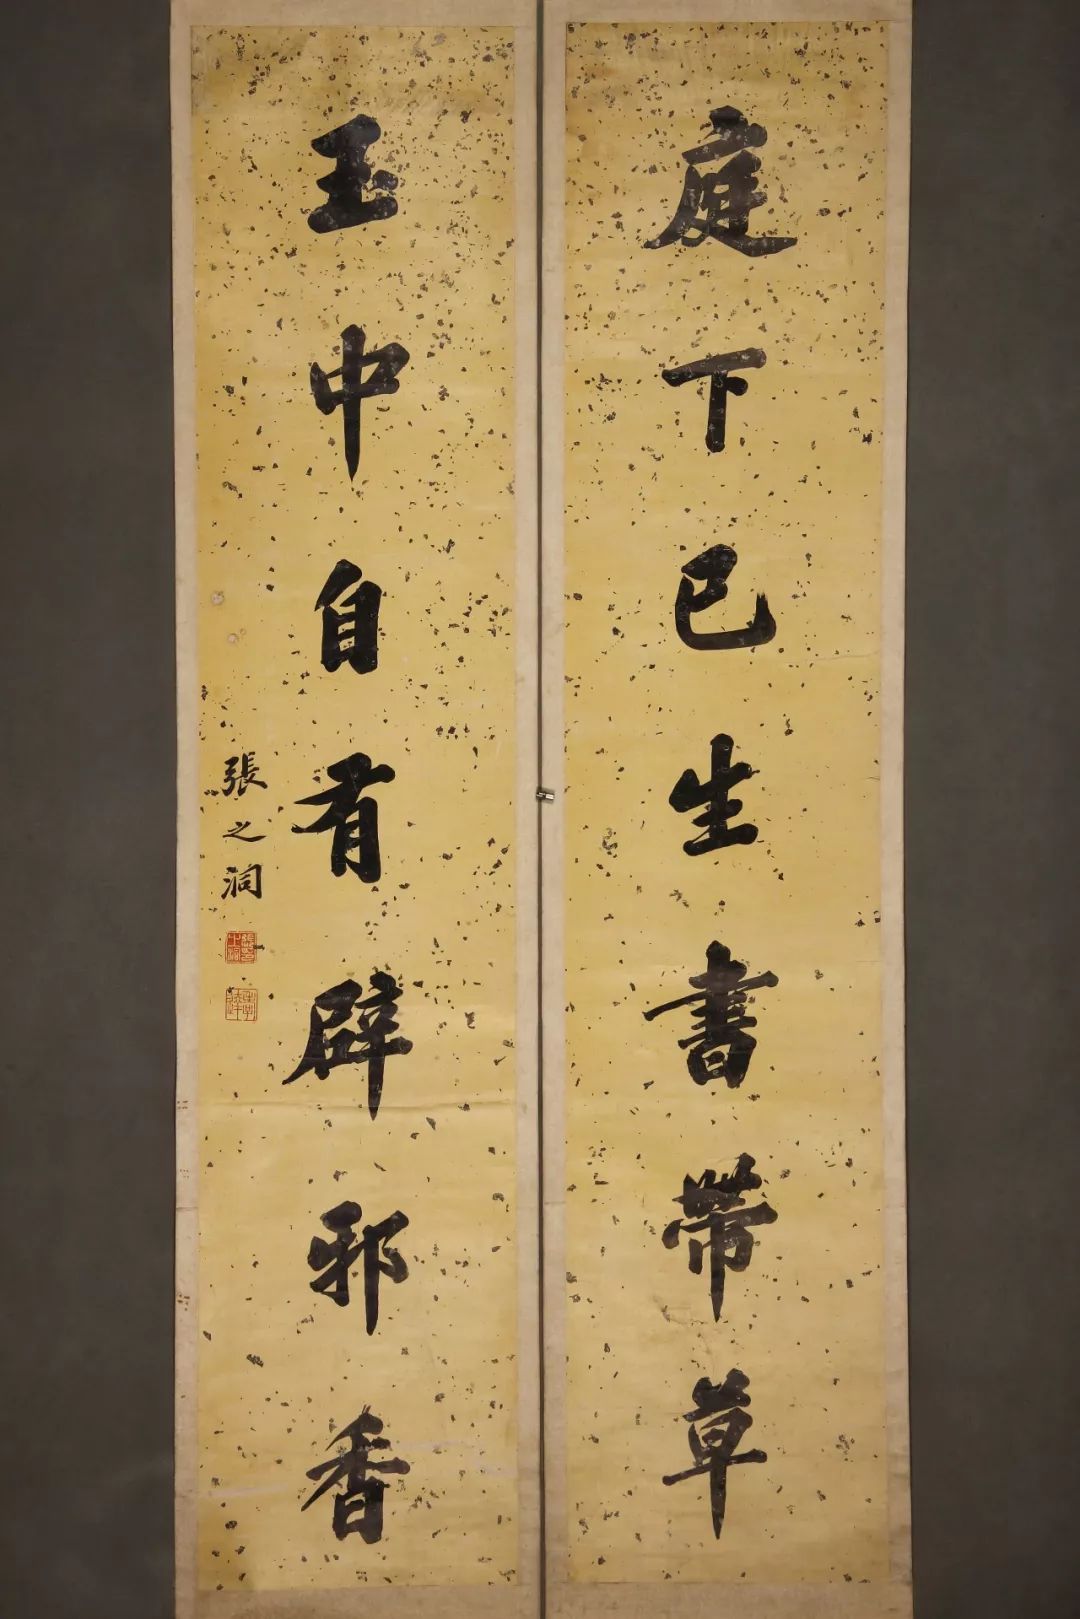 庭下已生書帶草
玉中自有辟邪香
張之洞